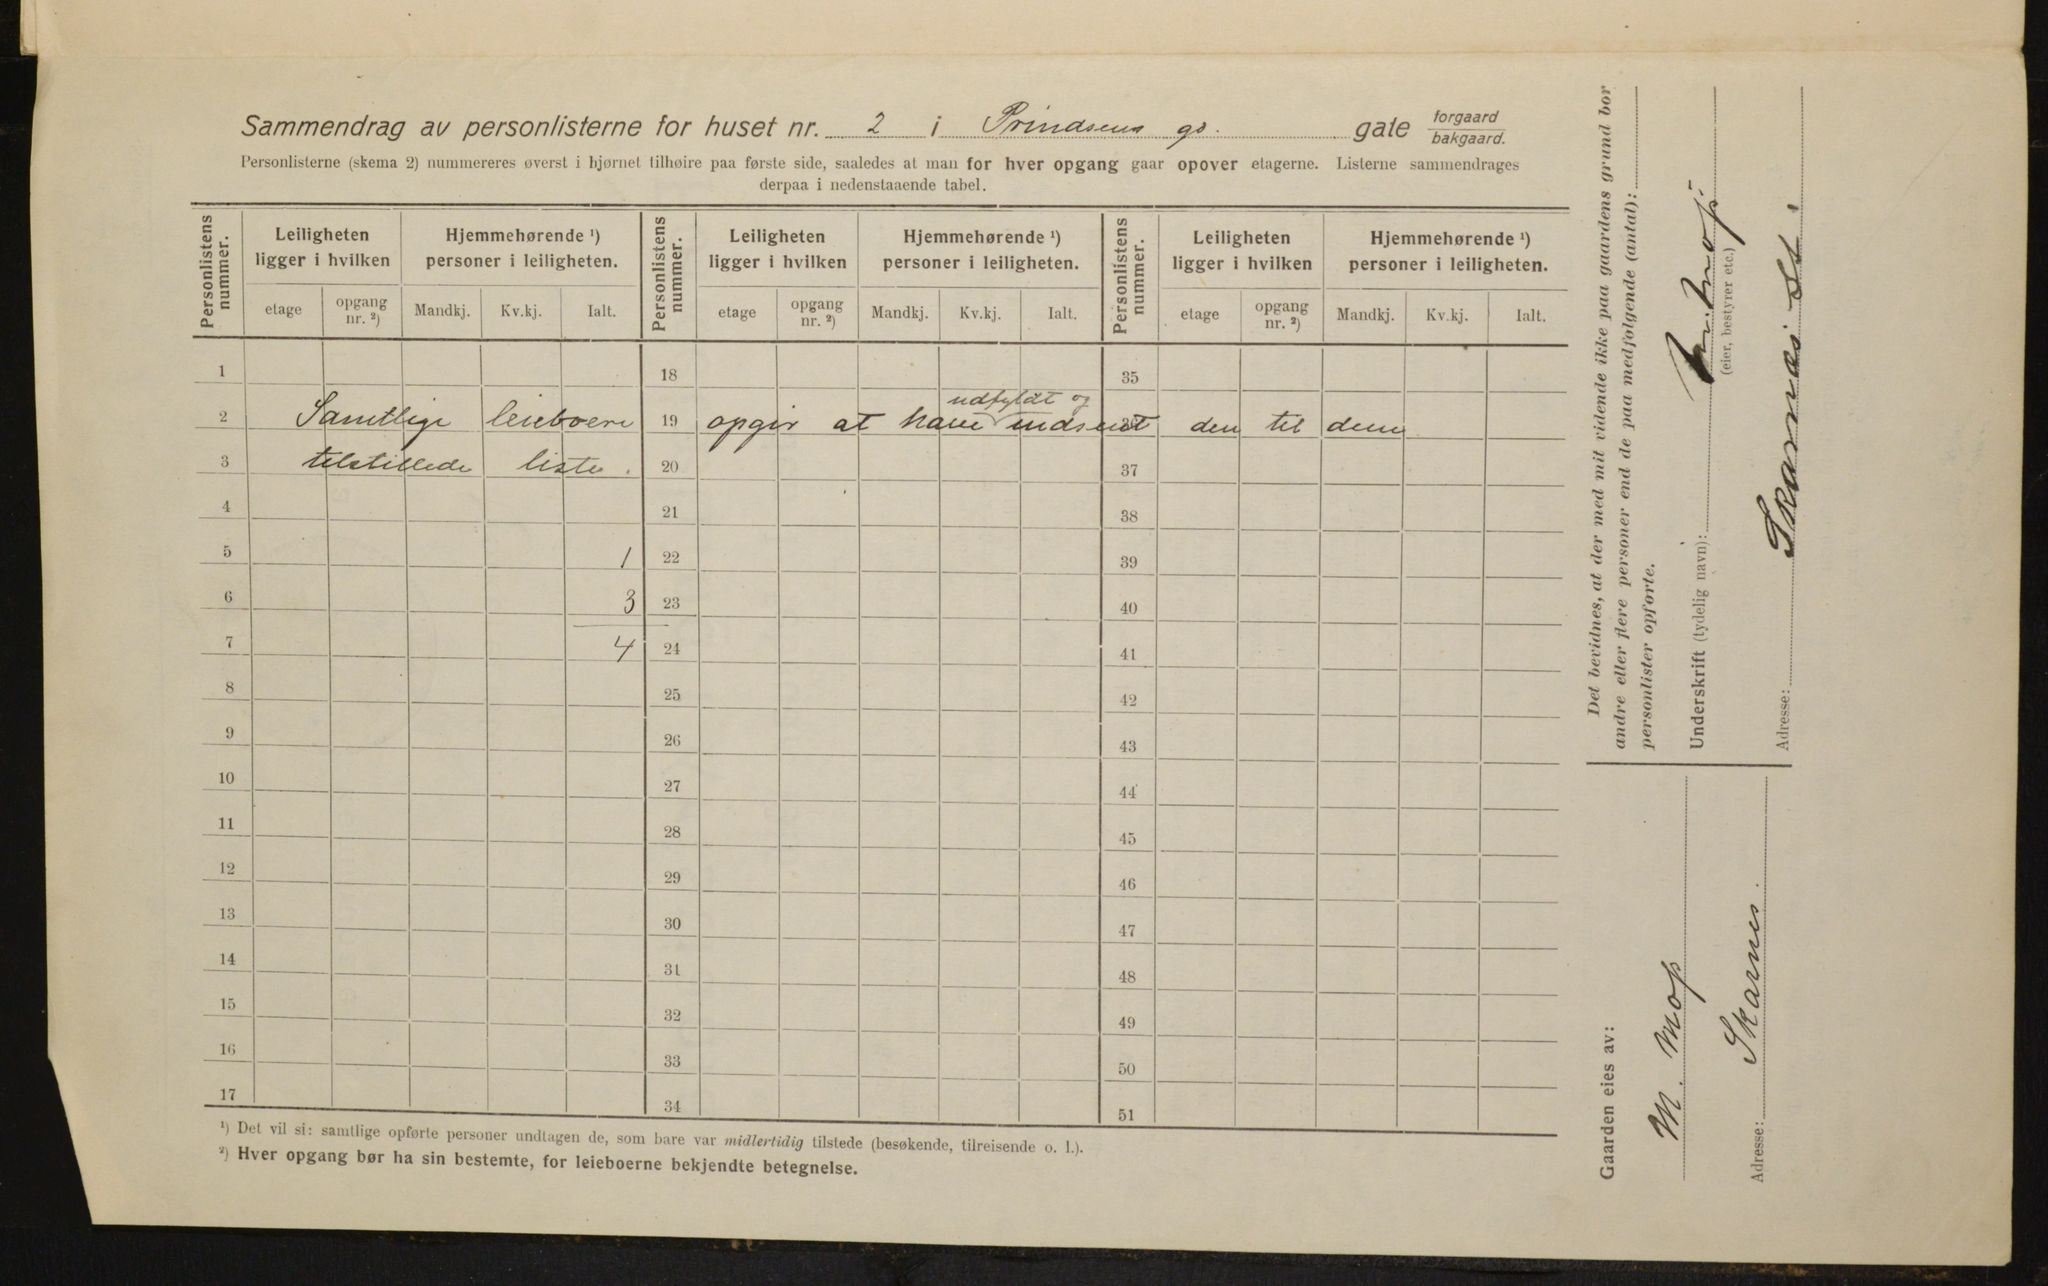 Sammendrag av personlisterne for huset nr. 2 i Prindsens gd. gate forgaard bakgaard.
Personlisterne (skema 2) nummereres øverst i hjørnet tilhøire paa første side, saaledes at man for hver opgang gaar opover etagerne. Listerne sammendrages
derpaa i nedenstaaende tabel.
Personlistens nummer. Leiligheten ligger i hvilken Hjemmehørende ¹) personer i leiligheten. Personlistens nummer. Leiligheten ligger i hvilken Hjemmehørende ¹) personer i leiligheten. Personlistens nummer. Leiligheten ligger i hvilken Hjemmehørende ¹) personer i leiligheten.
etage opgang nr. ²) Mandkj. Kv.kj. Ialt. etage opgang nr. ²) Mandkj. Kv.kj. Ialt. etage opgang nr. ²) Mandkj. Kv.kj. Ialt.
1 18 35
udfyldt og
2 Samtlige leieboere 19 opgir at have indsendt den til dem
3 tilstillede liste. 20 37
4 21 38
5 1 22 39
6 3 23 40
7 4 24 41
8 25 42
9 26 43
10 27 44
11 28 45
12 29 46
13 30 47
14 31 48
15 32 49
16 33 50
17 34 51
¹) Det vil si: samtlige opførte personer undtagen de, som bare var midlertidig tilstede (besøkende, tilreisende o. l.).
²) Hver opgang bør ha sin bestemte, for leieboerne bekjendte betegnelse.
Det bevidnes, at der med mit vidende ikke paa gaardens grund bor
andre eller flere personer end de paa medfølgende (antal):
personlister opførte.
Underskrift (tydelig navn): M. Mop.
(eier, bestyrer etc.)
Adresse: Skarnæs St.
Gaarden eies av:
M. Mop
Adresse: Skarnes.